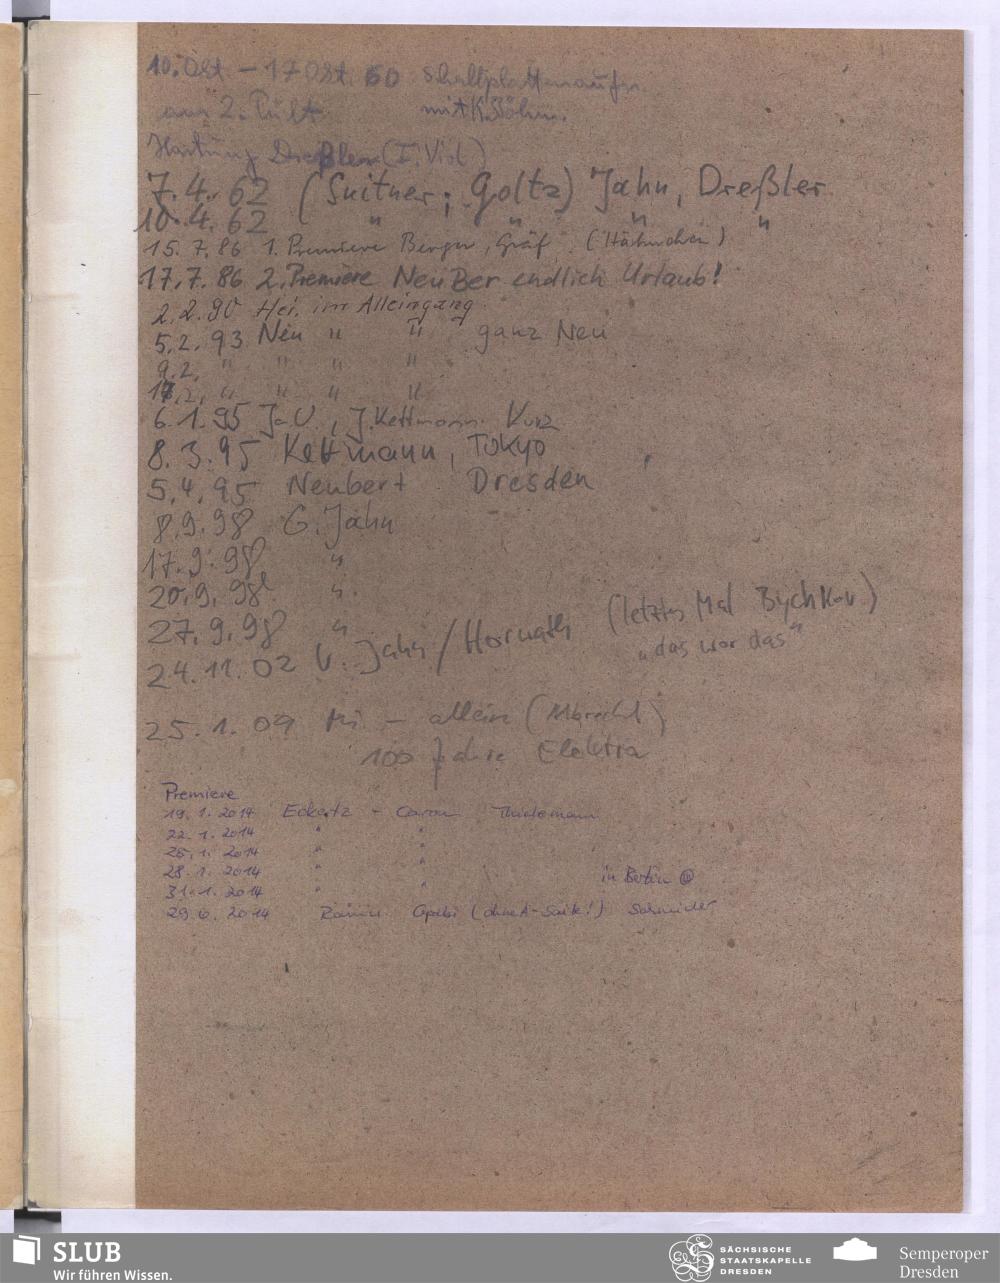 10. Okt. – 17 Okt. 60 Schallplattenaufn.
am 2. Pult mit K. Böhm.
Hartung Dreßler (I. Viol)
7.4.62 (Suitner; Goltz) Jahn, Dreßler
10.4.62 " " " "
15.7.86 1. Premiere Berger, Gräf (Hähnchen)
17.7.86 2. Premiere Neu Ber endlich Urlaub!
2.2.90 Hei. im Alleingang
5.2.93 Neu " " ganz Neu
9.2. " " " "
17.2. " " " "
6.1.95 J. Kettmann Kurz
8.3.95 Kettmann, Tokyo
5.4.95 Neubert Dresden
8.9.98 G. Jahn
17.9.98 "
20.9.98 "
27.9.98 "
24.11.02 U. Jahn / Horwath (letztes Mal Bychkov)
"das war das"
25.1.09 Mi – allein (Albrecht)
100 Jahre Elektra
Premiere
19.1.2014 Eckartz – Caron Thielemann
22.1.2014 " "
25.1.2014 " "
28.1.2014 " " in Berlin
31.1.2014 " "
29.6.2014 (ohne A-Saite!) Schneider
SLUB
Wir führen Wissen.
SÄCHSISCHE
STAATSKAPELLE
DRESDEN
Semperoper
Dresden